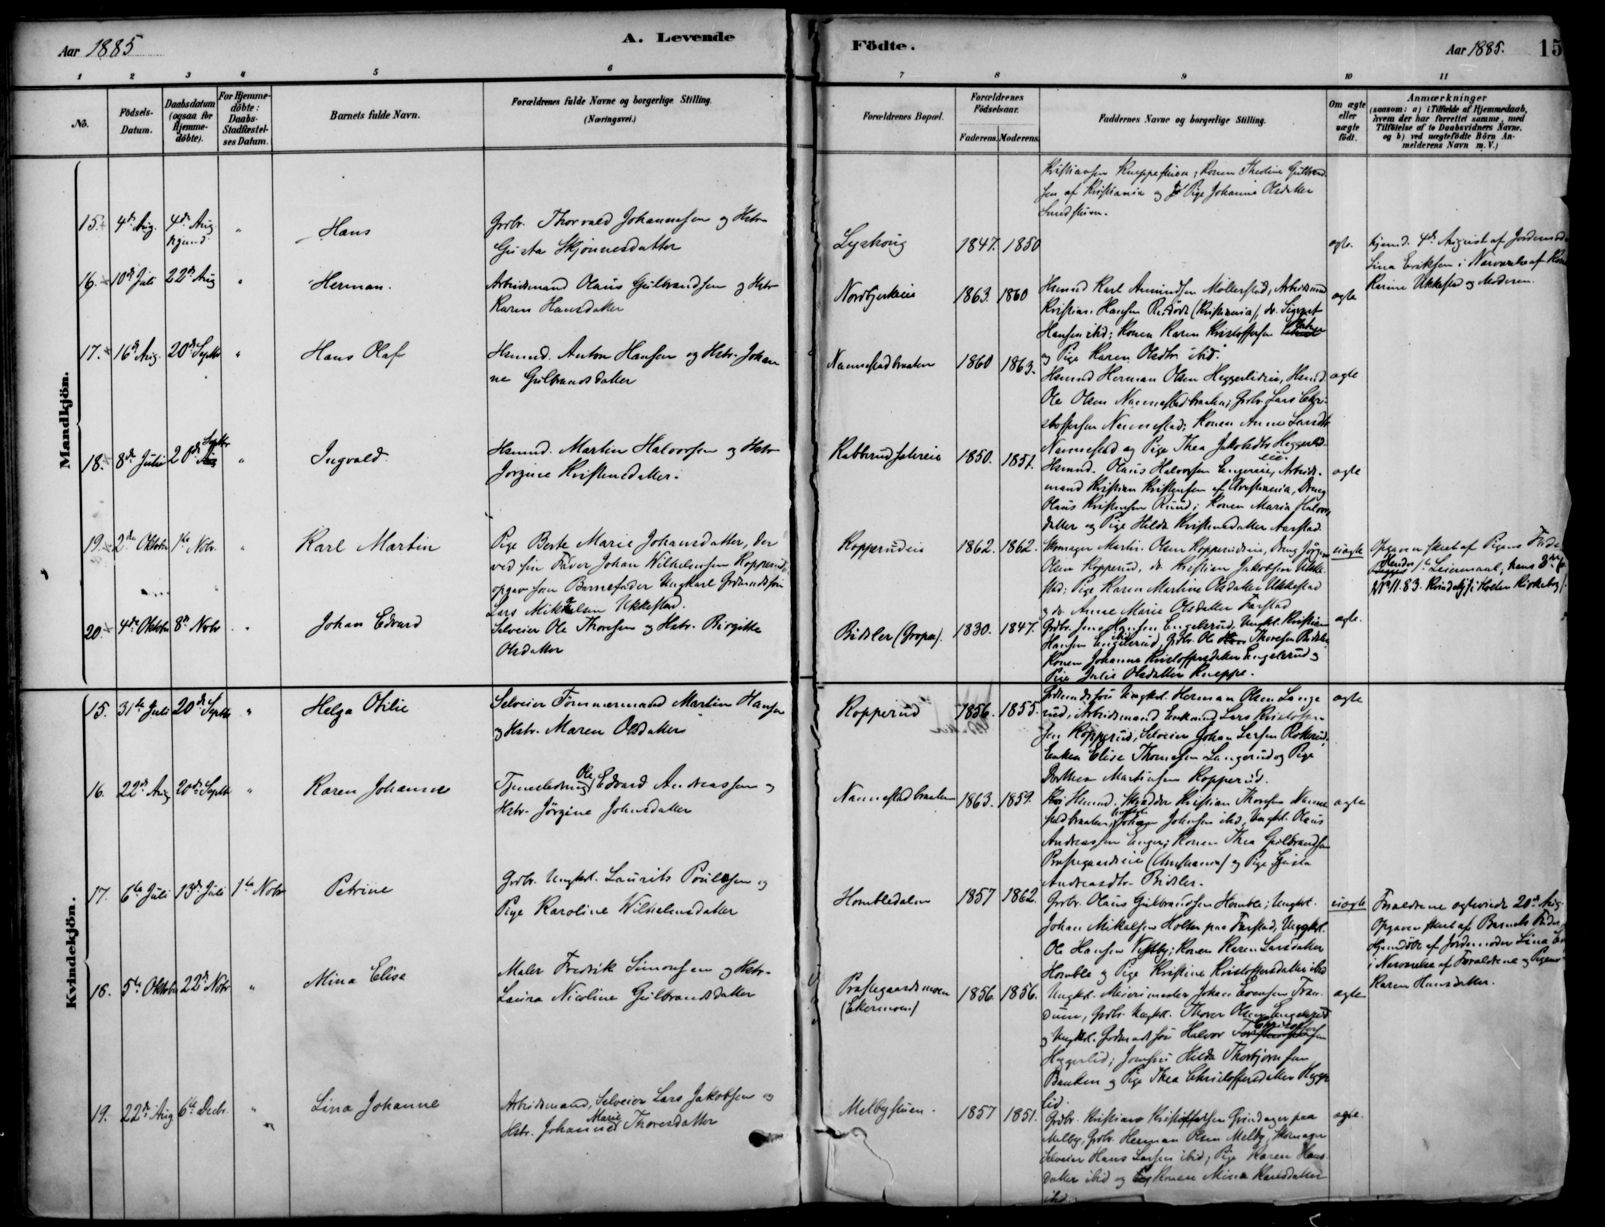 Aar 1885
A. Levende
Födte.
Aar 1885.
15
1 2 3 4 5 6 7 8 9 10 11
No.
Födsels-
Datum.
Daabsdatum
(ogsaa for
Hjemme-
döbte).
For Hjemme-
döbte:
Daabs-
Stadfæstel-
ses Datum.
Barnets fulde Navn.
Forældrenes fulde Navne og borgerlige Stilling.
(Næringsvei.)
Forældrenes Bopæl.
Forældrenes
Födselsaar.
Faderens. Moderens.
Faddernes Navne og borgerlige Stilling.
Om ægte
eller
uægte
födt.
Anmærkninger
(saasom: a) i Tilfælde af Hjemmedaab,
hvem der har forrettet samme, med
Tilföielse af to Daabsvidners Navne,
og b) ved uægtefödte Börn An-
melderens Navn m. V.)
Mandkjön.
Konen Theoline
sen af Kristiania og Pige Johanne Olsdatter
15. 4de Aug. 4de Aug " Hans
Grdbr. Thorvald Johannesen og Hstr.
Gusta Skjönnesdatter
1847. 1850
ægte.
Hjemd. 4de August af Jordemoder
Lina Eriksen i Nærværelse af
Karine Ukkestad og Moderen.
16. 10de Juli 22de Aug " Herman.
Arbeidsmand Olaus Gulbrandsen og Hstr
Karen Hansdatter
1863. 1860
Husmd Karl Amundsen Möllerstad, Arbeidsmand
Kristian Hansen (Kristiania), do. Sigvart
Hansen ibid; Konen Karen Kristoffersen
og Pige Karen Olsdtr. ibid.
ægte
17. 16de Aug. 20de Septbr " Hans Olaf
Husmd. Anton Hansen og Hstr. Johan
ne Gulbrandsdatter
Nannestadbraaten
1860 1863.
Husmd Herman Olsen Heggerlideie, Husmd
Ole Olsen Nannestadbraaten, Grdbr. Lars Chri-
stoffersen Nannestad; Konen Anne Larsdtr
Nannestad og Pige Thea Jakobsdtr Heggerlid-
eie.
ægte
18. 8de Juli 20de Septbr " Ingvald
Husmd. Martin Halvorsen og Hstr
Jörgine Kristensdatter.
1850. 1851.
Husmd. Olaus Halvorsen Arbeids-
mand Kristian Kristensen af Kristiania, Dreng
Olaus Kristensen Ruud; Konen Maria Halvors
datter og Pige Hilda Kristensdatter Aarstad
ægte
19. 2den Oktbr 1ste Nobr. " Karl Martin
Pige Berte Marie Johansdatter, der
ved sin Fader Johan Wilhelmsen Kopperud
opgav som Barnefader Ungkarl Grdmandssön
Lars Mikkelsen Ukkestad.
Kopperudeie
1862. 1862.
Skomager Martin Olsen Kopperudeie, Dreng Jörgen
Olsen Kopperud, do Kristian Jakobsen Ukke-
stad; Pige Karen Martine Olsdatter Ukkestad
og do Anne Marie Olsdatter Farstad
uægte
Opgaven skeet af Pigens Fader
20. 4de Oktbr 8de Nobr. " Johan Edvard
Selveier Ole Thoresen og Hstr. Birgitte
Olsdatter
Bidsler (Dropa).
1830. 1847.
Grdbr. Jens Hansen Engelsrud, Ungkl. Kristian
Hansen Engelsrud, Grdbr. Ole Thoresen Bidsler
Konen Johanne Kristoffersdatter Engelsrud og
Pige Julie Olsdatter Kneppe.
ægte.
Kvindekjön.
15. 31te Juli 20de Septbr " Helga Otilie
Selveier Tömmermand Martin Hansen
og Hstr. Maren Olsdatter
Kopperud
1856. 1855.
Grdmandssön Ungkl. Herman Olsen Lange-
rud, Arbeidsmand Enkemd Lars Kristoffer-
sen Kopperud, Selveier Johan Larsen
Enken Elise Thomesen Langerud og Pige
Dorthea Martinsen Kopperud.
ægte
16. 22de Aug 20de Septbr " Karen Johanne
Tjenestedreng Ole Edvard Andreassen og
Hstr. Jörgine Johnsdatter
Nannestadbraaten
1863. 1859.
Husmd. Skrædder Kristian Thoresen Nanne-
stadbraaten, Ungkl. Johan Johnsen ibid, Ungkl. Olaus
Andreassen Enger; Konen Thea Guldbrandsen
Præstegaardseie og Pige Gusta
Andreasdtr. Bidsler.
ægte
17. 6te Juli 13de Juli 1ste Nobr Petrine
Grdbr. Ungkl. Laurits Poulsen og
Pige Karoline Wilhelmsdatter
Hombledalen
1857 1862.
Grdbr. Olaus Gulbrandsen Homble; Ungkl.
Johan Mikkelsen Holter paa Farstad, Ungkl.
Ole Hansen Nestby; Konen Karen Larsdatter
Homble og Pige Kristine Kristoffersdatter ibid
uægte
Forældrene ægteviede 20de Aug
Opgaven skeet af Barnets Fader
Hjemdöbt af Jordemoder Lina
i Nærværelse af Forældrene og Pigen
Karen Hansdatter.
18. 5te Oktbr 22de Nobr " Mina Elise
Maler Fredrik Simonsen og Hstr.
Laura Nicoline Gulbrandsdatter
Præstegaardsmoen
(Ekermoen)
1856. 1856.
Ungkl. Meierimester Johan Evensen Tran-
dum, Grdbr. Ungkl. Thorer Olsen Engelsrud
og Ungkl. Grdmandssön Halvor Christoffersen
Heggerlid; Jomfru Hilda Thorbjörnsen
Banken og Pige Thea Christoffersdatter Hegger-
lid.
ægte
19. 22de Aug 6te Decbr. " Lina Johanne
Arbeidsmand, Selveier Lars Jakobsen og
Hstr. Johanne Marie Thoresdatter
Melbystuen.
1857 1851.
Grdbr. Kristian Kristoffersen Grindager paa
Melby, Grdbr. Herman Olsen Melby, Skomager
Selveier Hans Larsen ibid; Pige Karen Hans-
datter ibid og Konen Mina Karlsdatter
ibid.
ægte.